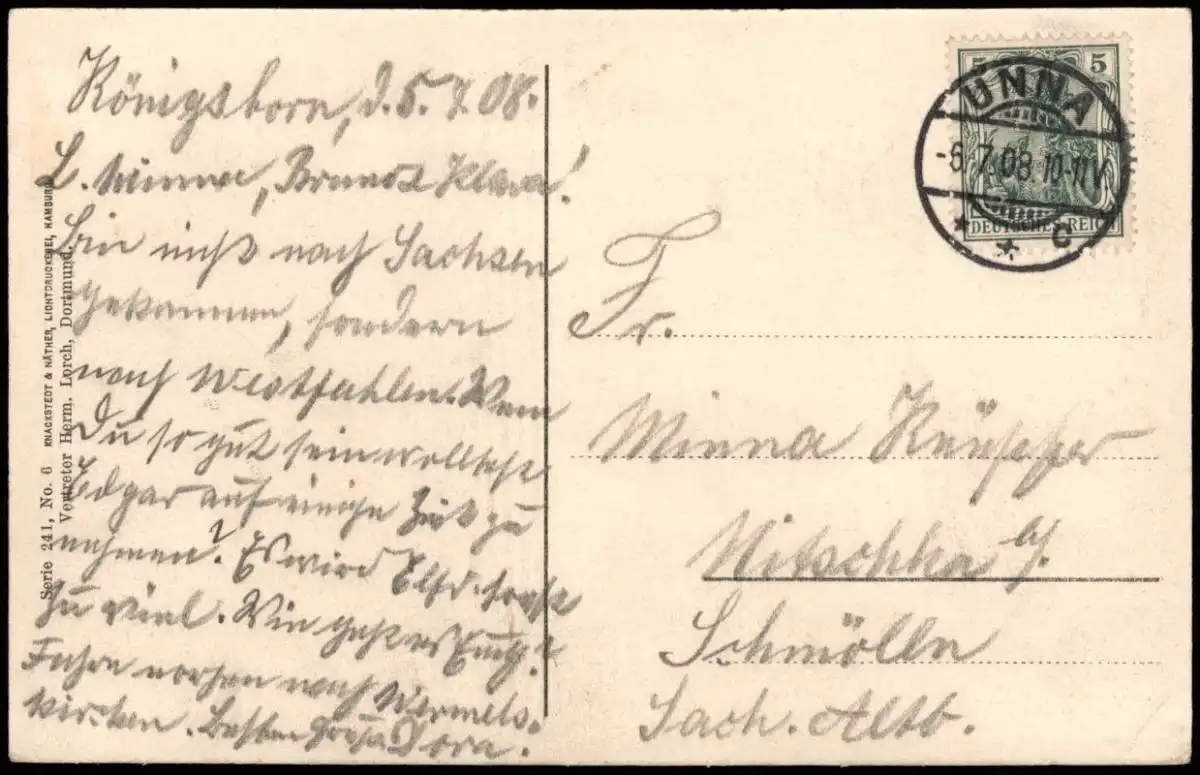 Königsborn, d. 5.7.08.
L. Minna, Bruno & Klara!
Bin nicht nach Sachsen
gekommen, sondern
nach Westfahlen. Wenn
Du so gut sein wolltest
Edgar auf einige Zeit zu
nehmen? Es wird Elfr. sonst
zu viel. Wie geht es Euch?
Fahre morgen nach Wermels-
kirchen. Besten Gruß Dora.
Serie 241, No. 6 KNACKSTEDT & NÄTHER, LICHTDRUCKEREI, HAMBURG.
Vertreter Herm. Lorch, Dortmund.
5 5
DEUTSCHES REICH
UNNA
-6.7.08.10-11V.
* * c
Fr.
Minna
Nitschka b/.
Schmölln
Sach. Altb.